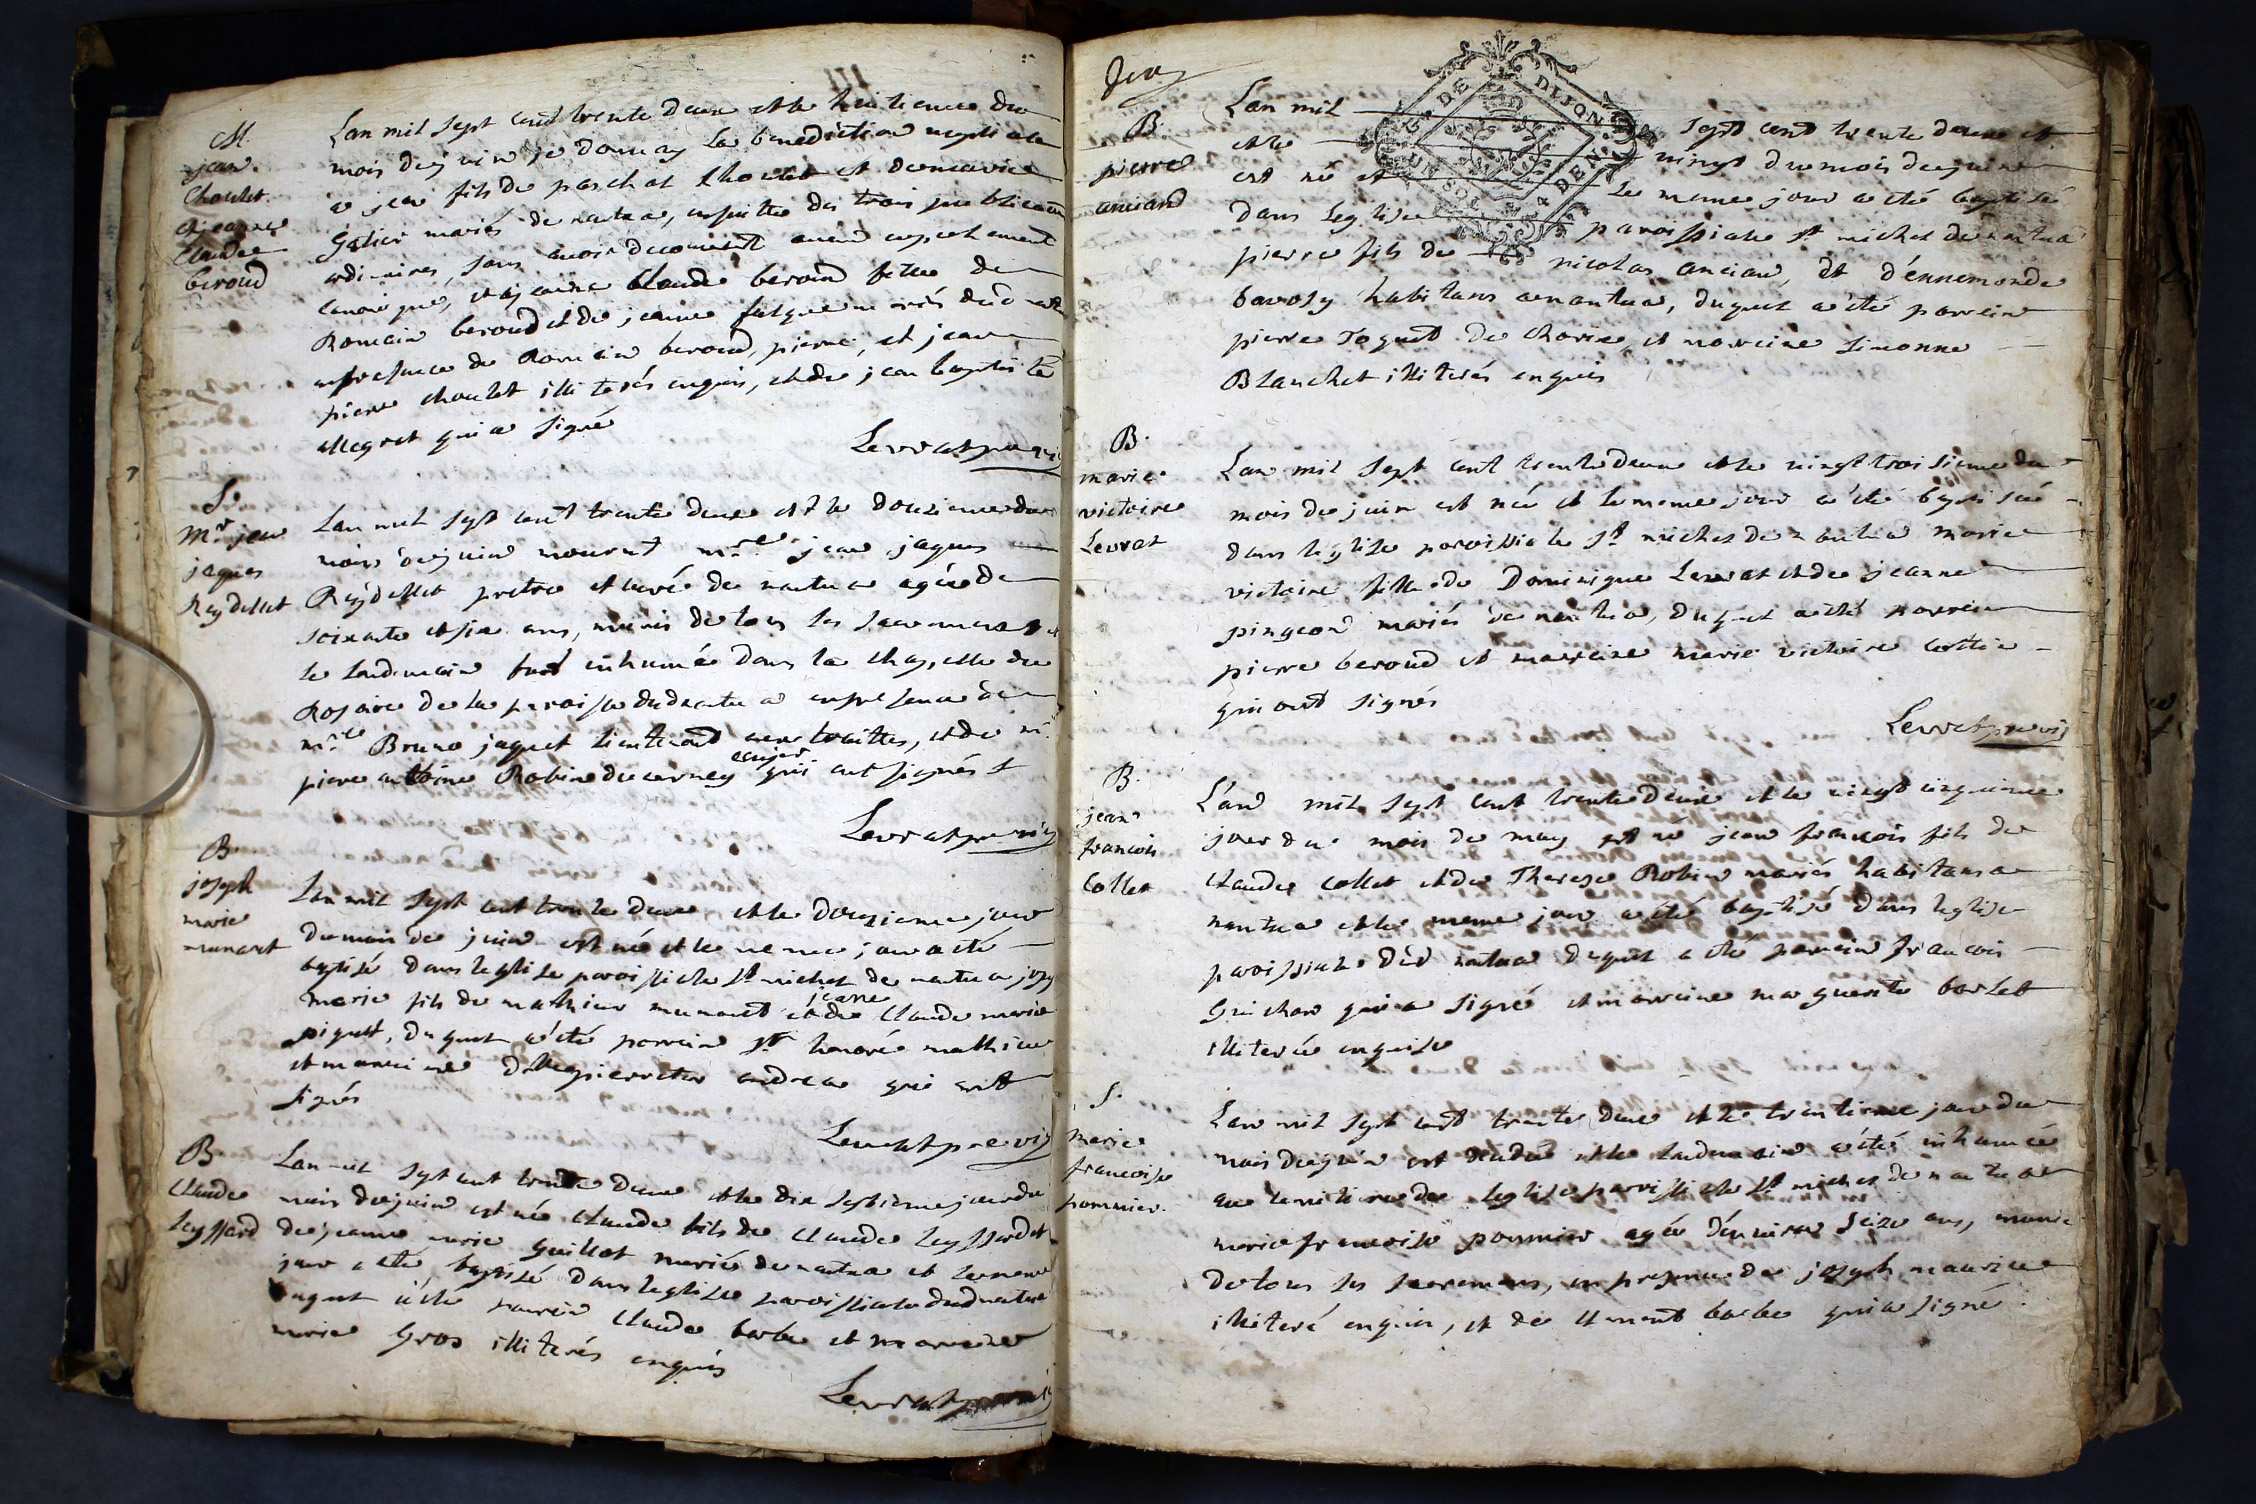 M.
jean
Choulet
et jeanne
Claude
beroud
Lan mil sept cent trente deux et le huitieme du
mois de juin je donnay la benediction nuptiale
a jean fils de paschal Choulet et de mauricie
mariés de nantua, ensuitte des trois publica
ordinaires, sans avoir decouvert aucun empechement
canonique, et a jeanne Claude beroud fille de
Romain beroud et de jeanne mariés dud
en presence de Romain beroud, pierre, et jean
pierre choulet illiterés enquis, et de jean baptiste
allegret qui a signé
Levrat
S.
Mr. jean
jaques
Reydellet
Lan mil sept cent trente deux et le douzieme du
mois de juin mourut mre. jean jaques
Reydellet pretre et curé de nantua agée de
soixante et six ans, munis de tous les sacremens et
le lendemain fut inhumé dans la chapelle du
Rosaire de la paroisse dud nantua en presence de
mre Bruno jaquet lieutenant aux traittes, et de mr.
pierre antoine Robin ducerney ecuyer qui ont signés
Levrat
B
joseph
marie
munaret
Lan mil sept cent trente deux et le douzieme jour
du mois de juin est né et le meme jour a été
baptisé dans leglise paroissiale st michel de nantua jose
marie fils de mathieu munaret et de jeanne Claude marie
piquet, duquel a été parrain sr. honoré mathieu
et marraine dlle pierrette andrea qui ont
signés
Levrat
B
Claude
Leyssard
Lan mil sept cent trente deux et le dix septieme jour du
mois de juin est né Claude fils de Claude Leyssard et
de jeanne marie Guillot mariés de nantua et le meme
jour a été baptisé dans leglise paroissiale dud nantua
duquel a été parrain Claude barbe et marraine
marie Gros illiterés enquis
Levrat
B.
pierre
anciand
GEN. DE DIJON
UN SOL & DEN.
Lan mil sept cent trente deux et
et le vingt du mois de juin
est né et le meme jour a été baptisé
dans leglise paroissiale st michel de nantua
pierre fils de nicolas ancian, et d'ennemonde
bavosy habitans a nantua, duquel a été parrain
pierre Toquet de Chorine, et marraine simonne
Blanchet illiterés enquis
B.
marie
victoire
Levrat
Lan mil sept cent trente deux et le vingt troisieme du
mois de juin est née et le meme jour a été baptisée
dans leglise paroissiale st michel de nantua marie
victoire fille de Dominique Levrat et de jeanne
pingeon mariés de nantua, duquel a été parrain
pierre beroud et marraine marie victoire
qui ont signés
Levrat
B.
jean
francois
Collet
L'an mil sept cent trente deux et le vingt cinquieme
jour du mois de may est né jean francois fils de
Claude Collet et de Thereze Robin mariés habitans a
nantua et le meme jour a été baptisé dans leglise
paroissiale dud nantua duquel a été parrain francois
Guichon qui a signé et marraine marguerite borlet
illiterée enquise
S.
marie
francoise
pommier
Lan mil sept cent trente deux et le trentieme jour du
mois de juin est decedée et le lendemain a été inhumée
au cimetiere de leglise paroissiale st michel de nantua
marie francoise pommier agée d'environ seize ans, munie
de tous les sacremens, en presence de joseph maurice
illiteré enquis, et de Clement barbe qui a signé